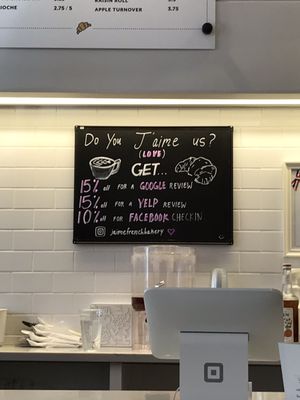 RAISIN ROLL
BRIOCHE 2.75 / 5 APPLE TURNOVER 3.75
Do You J'aime us?
(LOVE)
GET...
15% off FOR A GOOGLE REVIEW
15% off FOR A YELP REVIEW
10% off FOR FACEBOOK CHECKIN
jaimefrenchbakery